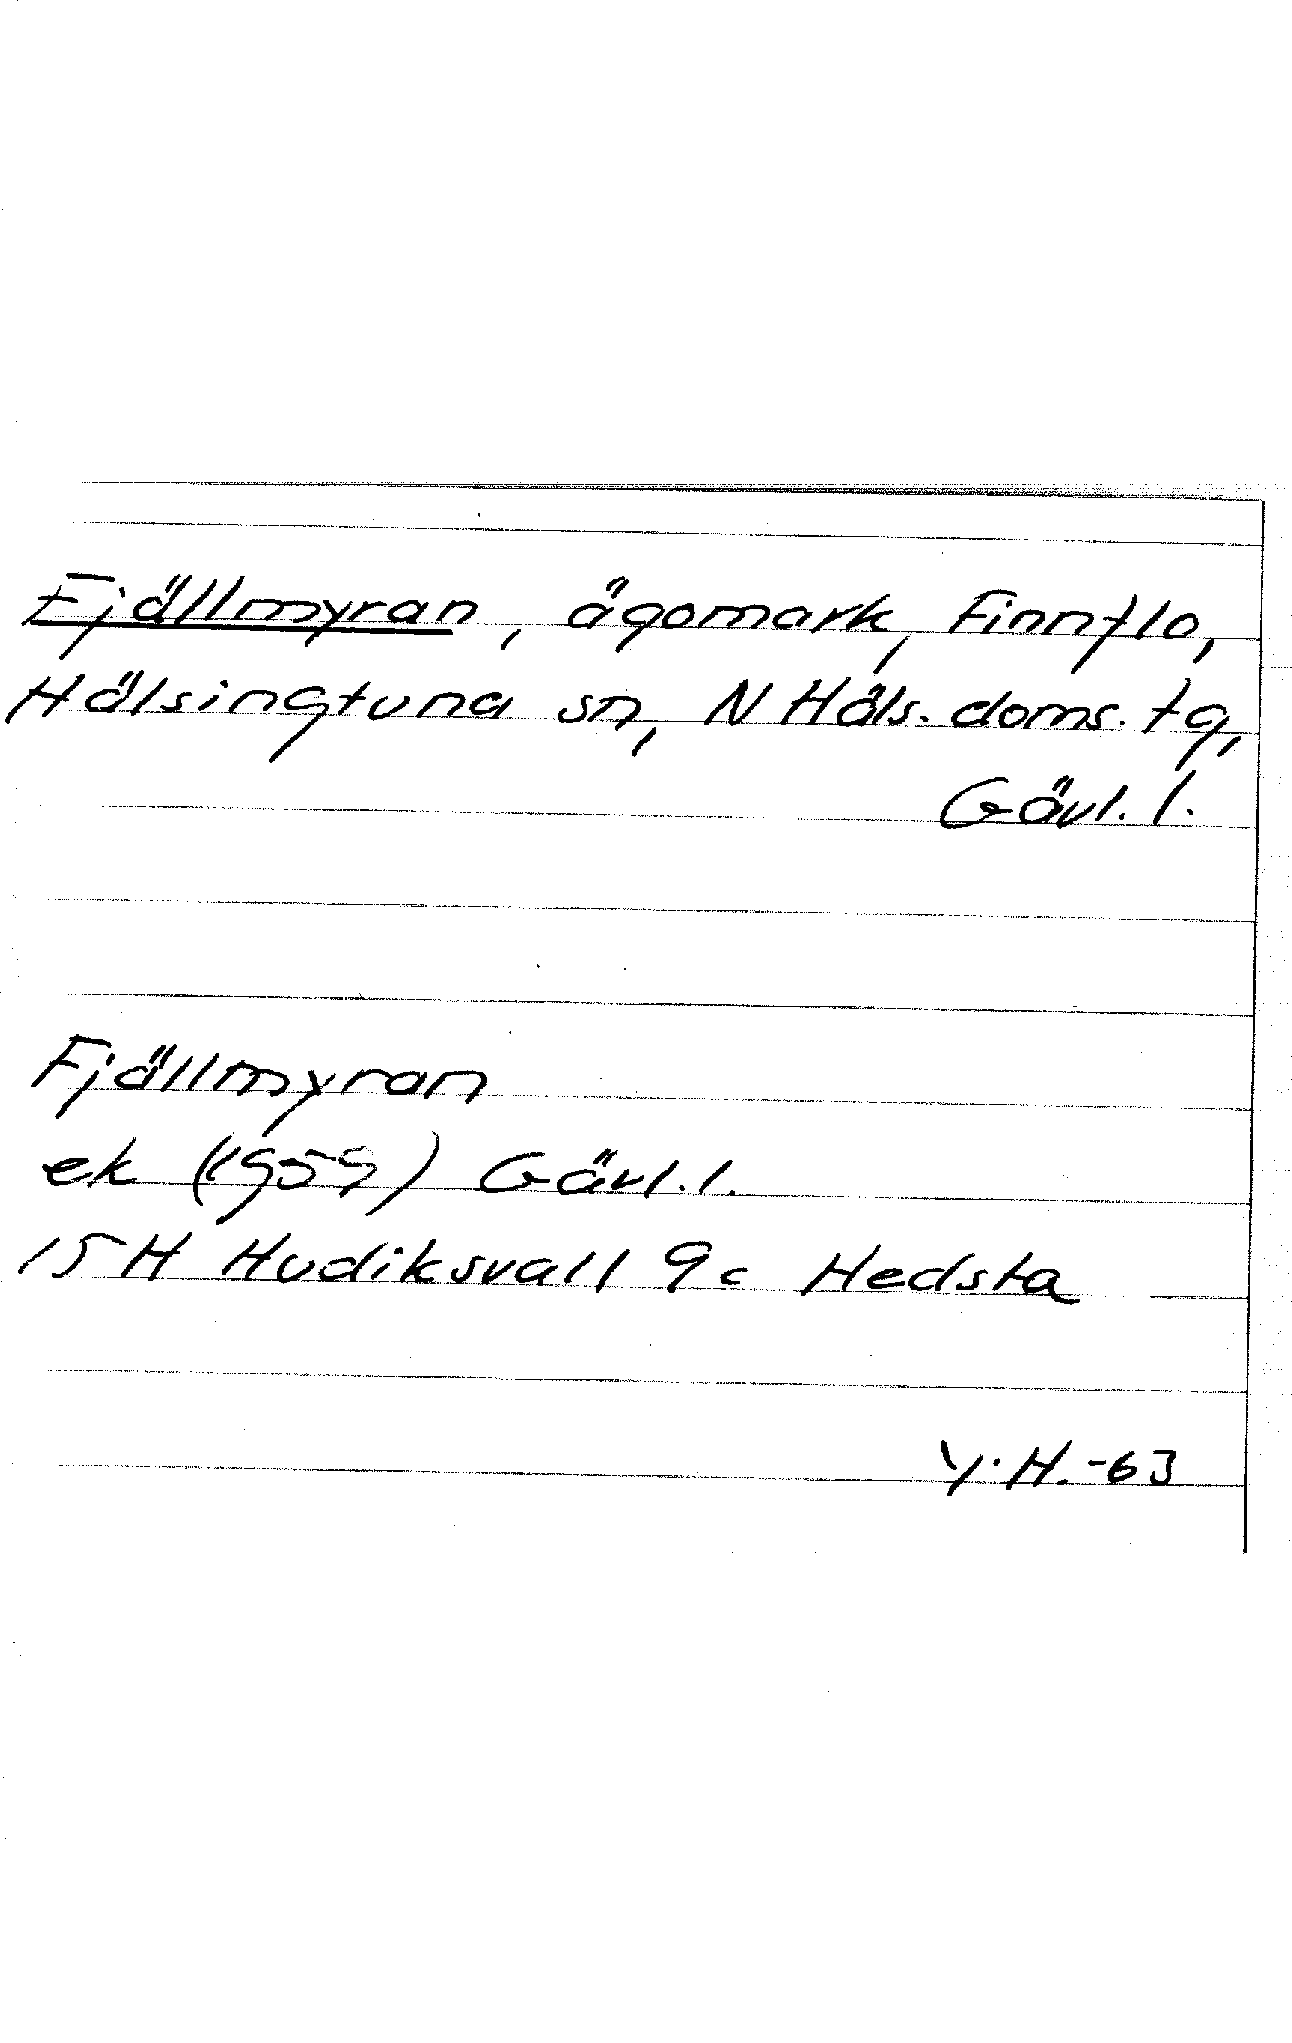 Fjällmyran, ägomark, Finnflo,
Hälsingtuna sn, N Häls. doms. tg,
Gävl. l.
Fjällmyran
ek (1959) Gävl. l.
15 H Hudiksvall 9 c Hedsta
Y. H. -63